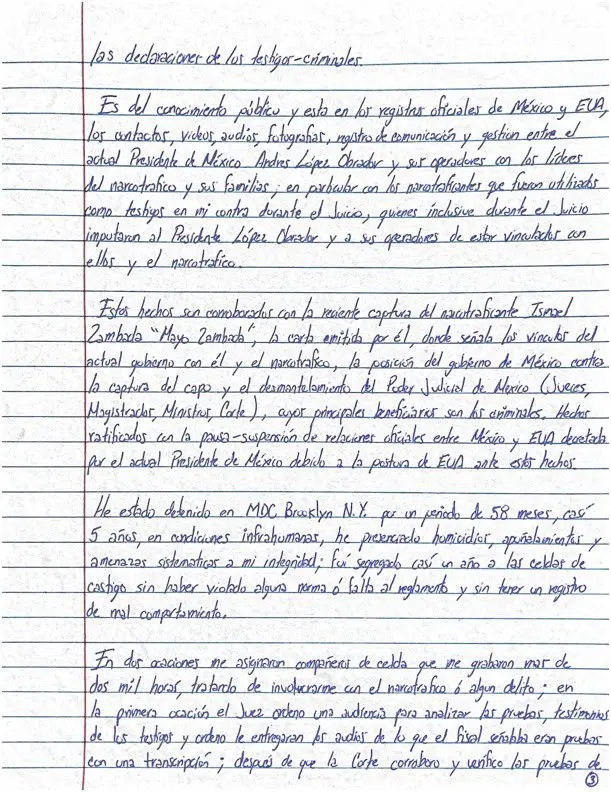 las declaraciones de los testigos-criminales.
Es del conocimiento público y esta en los registros oficiales de México y EUA,
los contactos, videos, audios, fotografias, registro de comunicación y gestion entre el
actual Presidente de México Andres López Obrador y sus operadores con los líderes
del narcotrafico y sus familias; en particular con los narcotraficantes que fueron utilizados
como testigos en mi contra durante el Juicio, quienes inclusive durante el Juicio
imputaron al Presidente López Obrador y a sus operadores de estar vinculados con
ellos y el narcotrafico.
Estos hechos son corroborados con la reciente captura del narcotraficante Ismael
Zambada "Mayo Zambada", la carta emitida por él, donde señala los vinculos del
actual gobierno con él y el narcotrafico, la posición del gobierno de México contra
la captura del capo y el desmantelamiento del Poder Judicial de Mexico (Jueces,
Magistrados, Ministros, Corte), cuyos principales beneficiarios son los criminales. Hechos
ratificados con la pausa-suspensión de relaciones oficiales entre México y EUA decretada
por el actual Presidente de México debido a la postura de EUA ante estos hechos.
He estado detenido en MDC Brooklyn N.Y. por un periodo de 58 meses, casi
5 años, en condiciones infrahumanas, he presenciado homicidios, apuñalamientos y
amenazas sistematicas a mi integridad; fui segregado casi un año a las celdas de
castigo sin haber violado alguna norma ó falta al reglamento y sin tener un registro
de mal comportamiento.
En dos ocaciones me asignaron compañeros de celda que me grabaron mas de
dos mil horas, tratando de involucrarme con el narcotrafico ó algun delito; en
la primera ocación el Juez ordeno una audiencia para analizar las pruebas, testimonios
de los testigos y ordeno le entregaran los audios de lo que el fiscal señalaba eran pruebas
con una transcripción; después de que la Corte corroboro y verifico las pruebas de
3